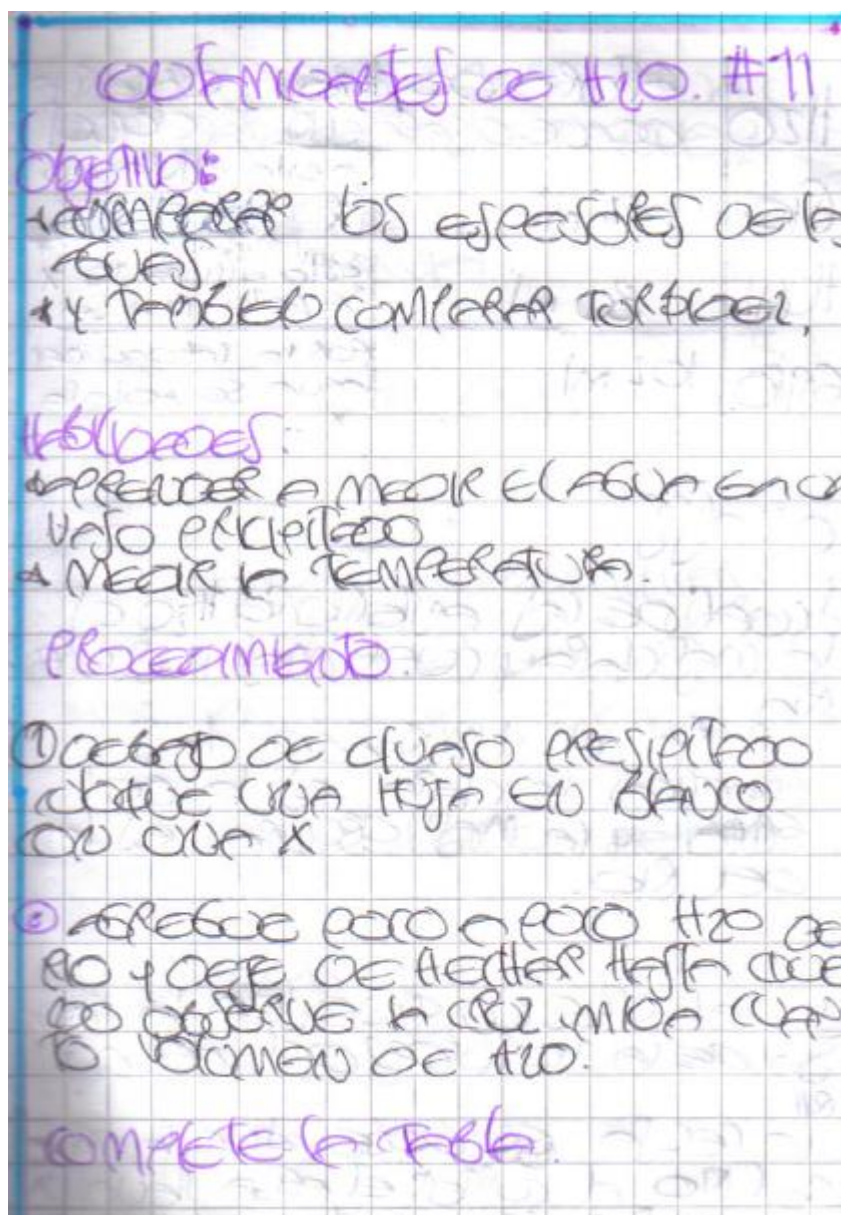 DE H2O. #11
OBJETIVO:
COMPARAR LOS ESPESORES DE LAS
AGUAS
* Y TAMBIEN COMPARAR TURBIDEZ.
HABILIDADES:
APRENDER A MEDIR EL AGUA EN
VASO PRICIPITADO
MEDIR LA TEMPERATURA.
PROCEDIMIENTO.
① DEBAJO DE EL VASO PRESIPITADO
COLOQUE UNA HOJA EN BLANCO
CON UNA X
② AGREGUE POCO A POCO H2O DE
RIO Y DEJE DE HECHAR HASTA QUE
NO OBSERVE LA CRUZ. MIDA CUAN
TO VOLUMEN DE H2O.
COMPLETE LA TABLA.